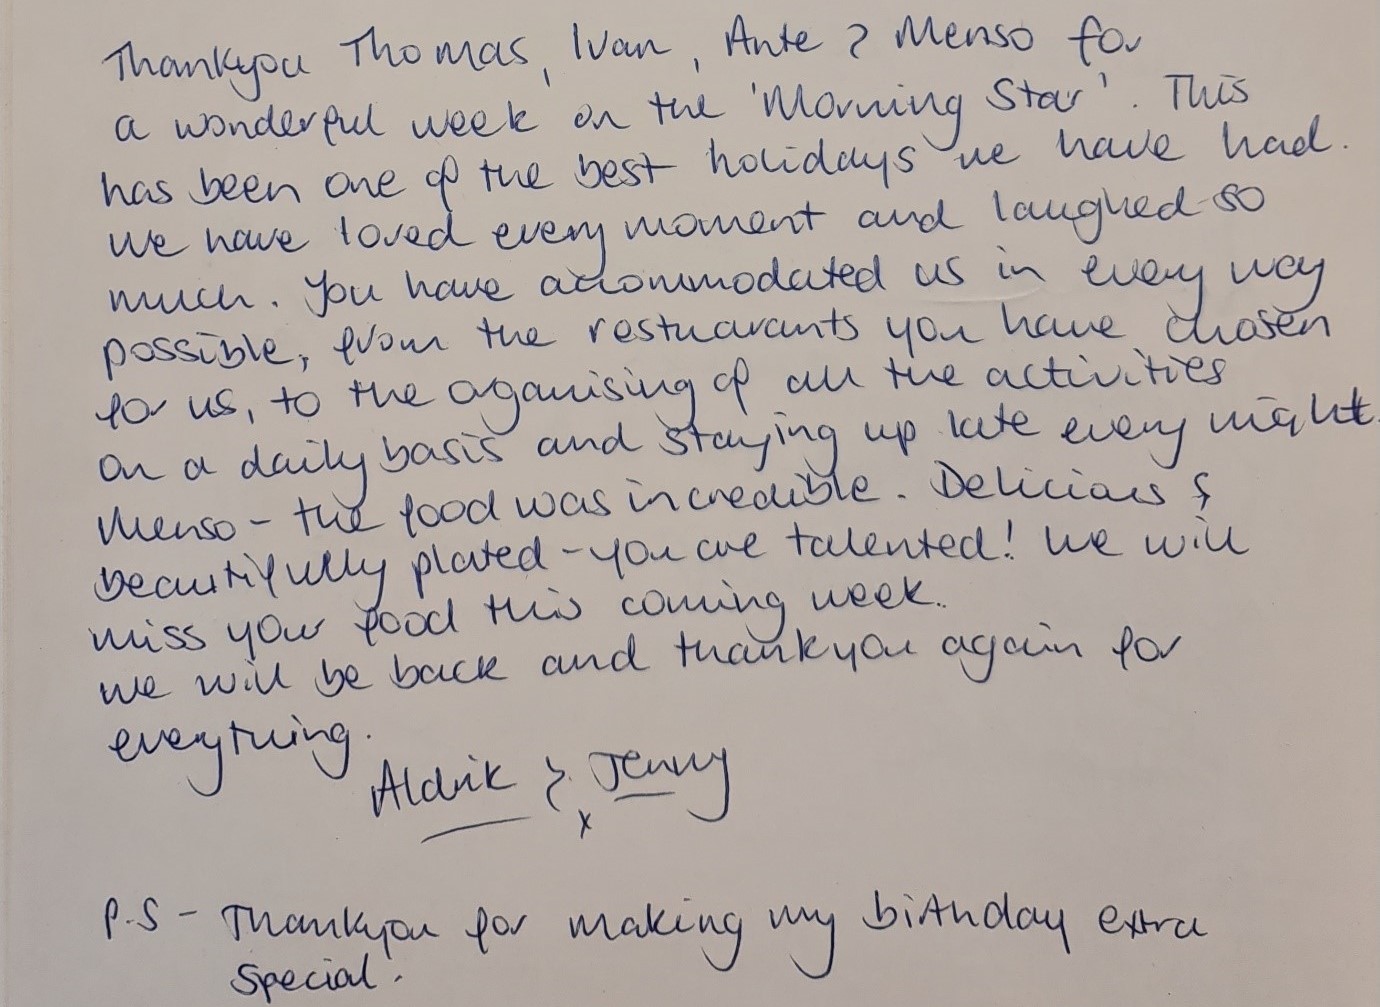 Thankyou Thomas, Ivan, Ante & Menso for
a wonderful week on the 'Morning Star'. This
has been one of the best holidays we have had.
We have loved every moment and laughed so
much. You have accommodated us in every way
possible, from the restuarants you have chosen
for us, to the oganising of all the activities
on a daily basis and staying up late every night.
Menso - the food was incredible. Delicious &
beautifully plated - you are talented! We will
miss your food this coming week.
We will be back and thankyou again for
everything.
Aldrik & Jenny
x
P.S - Thankyou for making my birthday extra
special.